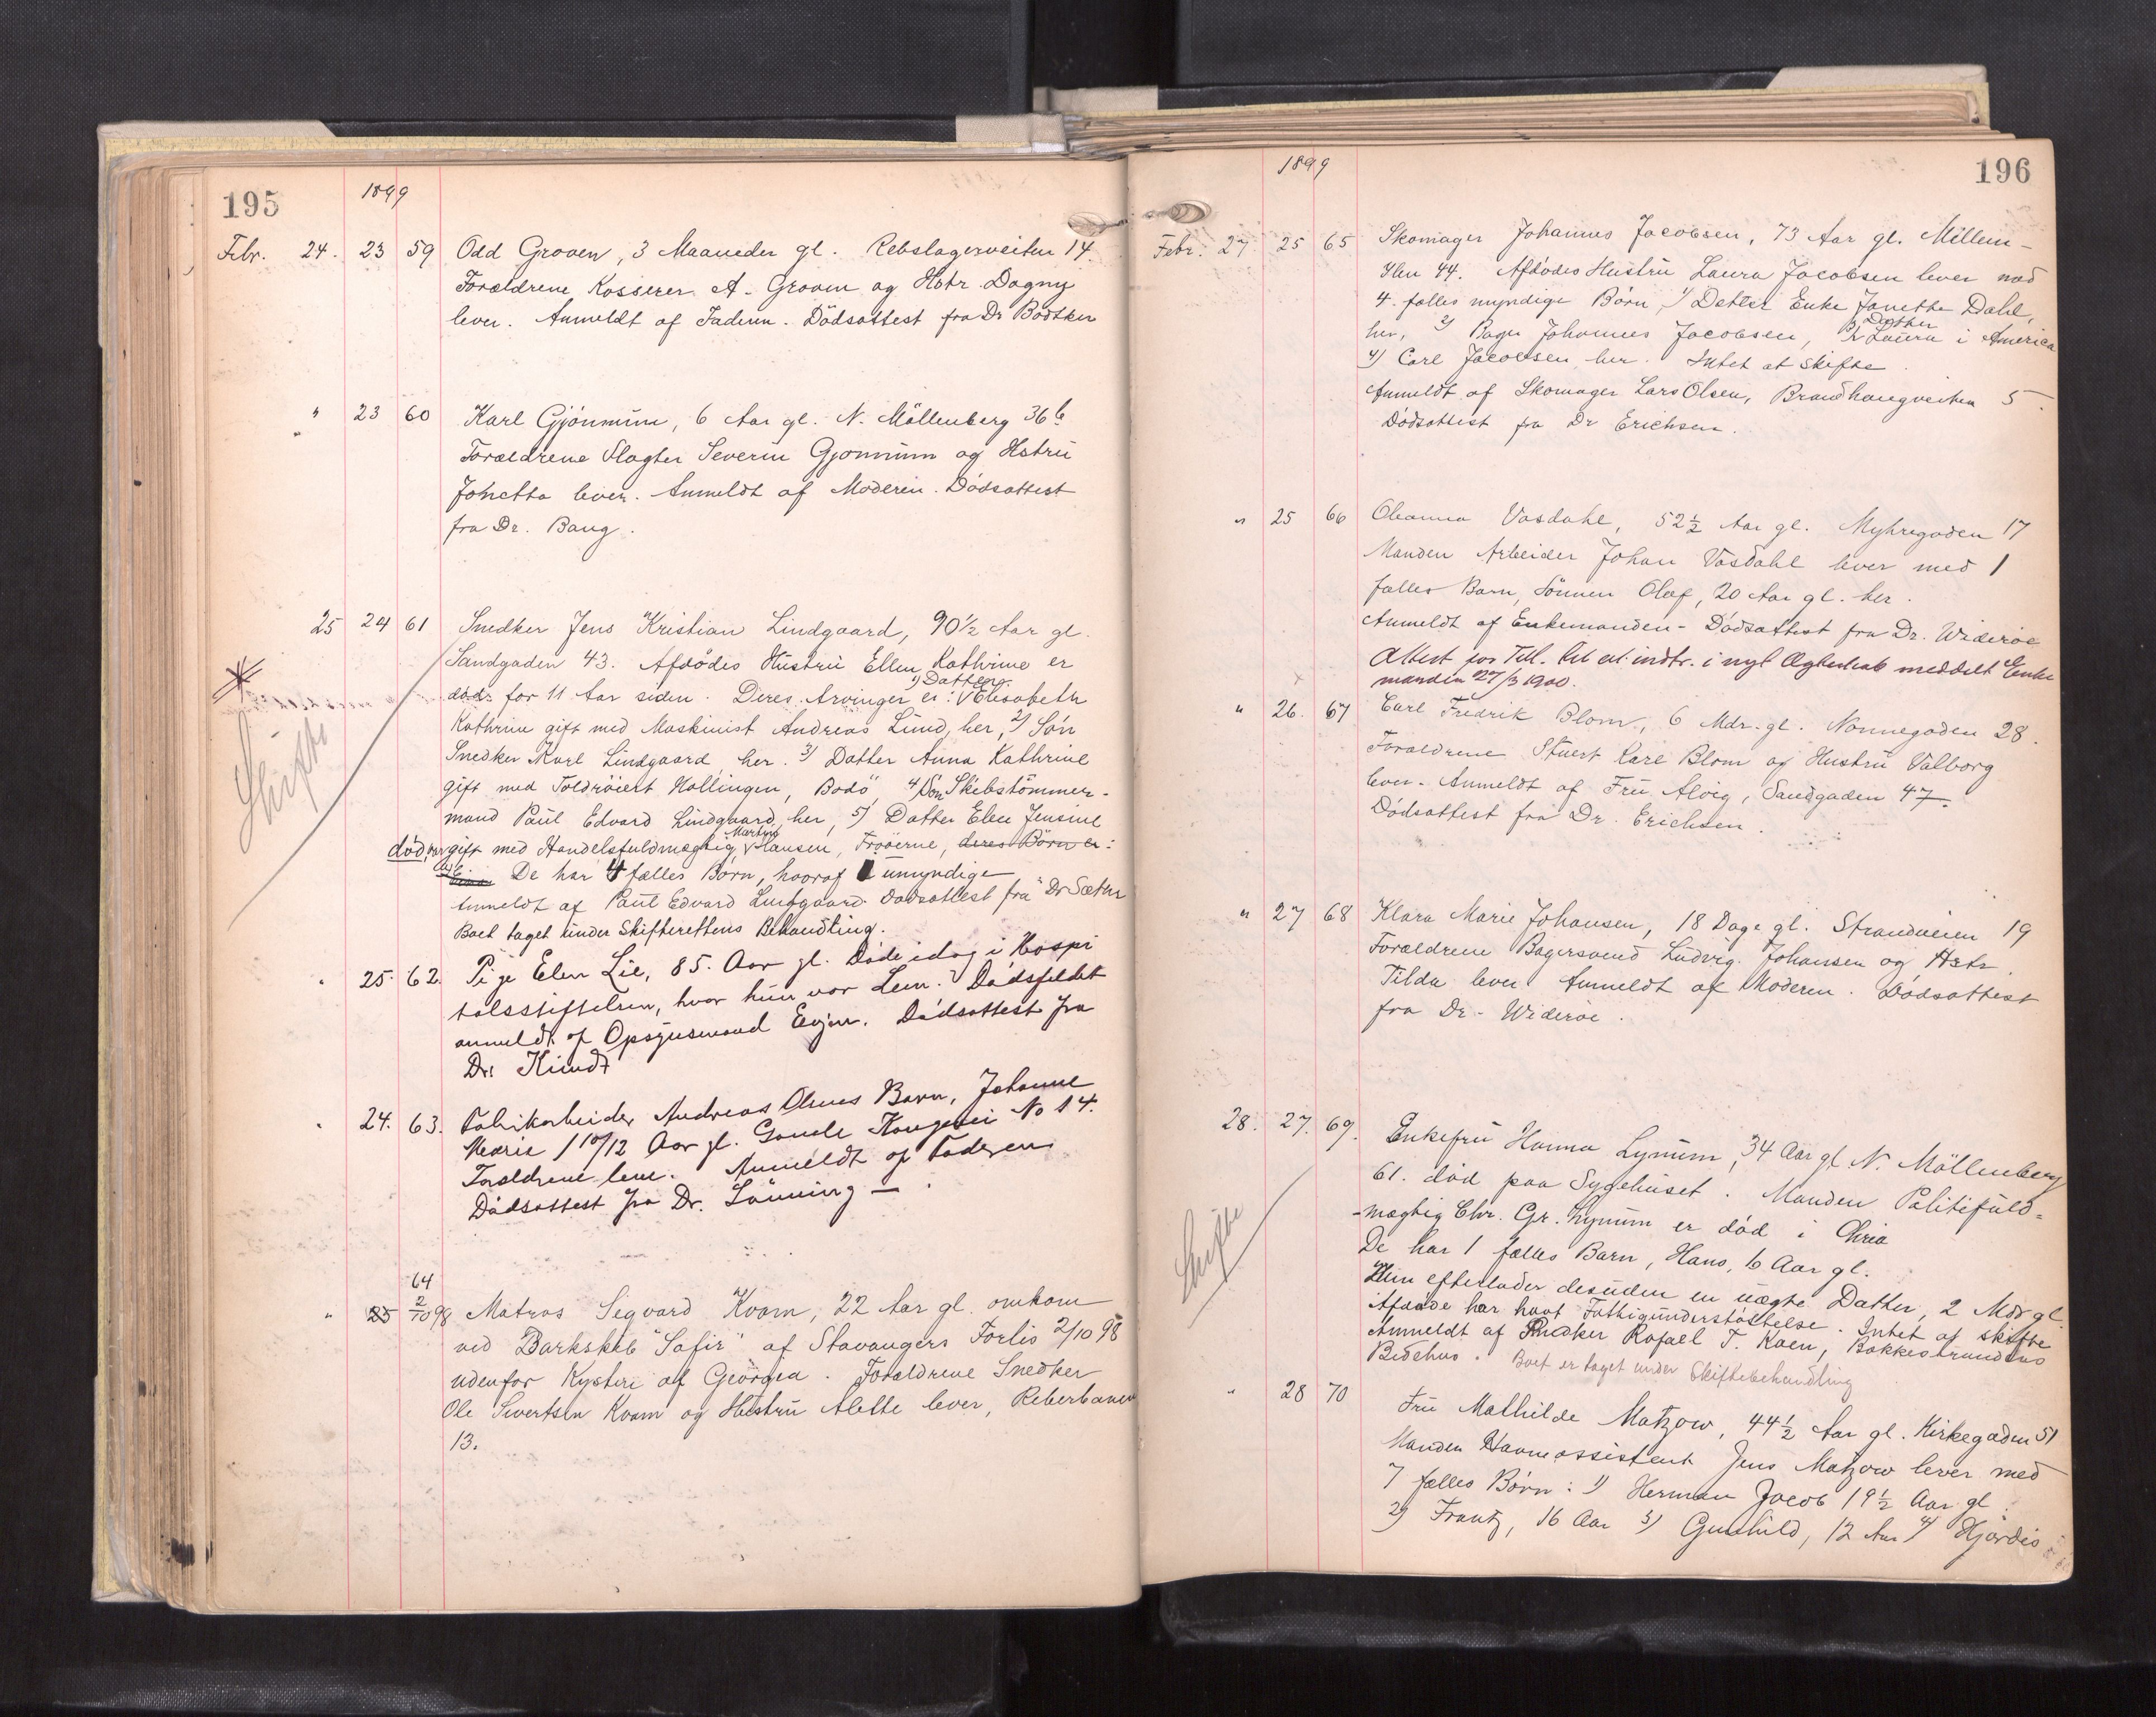 195
1899
Febr. 24. 23 59 Odd Groven, 3 Maaneder gl. Rebslagerveiten 14.
Forældrene Kasserer A. Groven og Hstr Dagny
lever. Anmeldt af Faderen. Dödsattest fra Dr Bödtker
" 23 60 Karl Gjönnum, 6 Aar gl. N. Möllenberg 36b
Forældrene Slagter Severin Gjönnum og Hstru
Johetta lever. Anmeldt af Moderen. Dödsattest
fra Dr. Bang.
25 24 61 Snedker Jens Kristian Lindgaard, 90½ Aar gl.
Sandgaden 43. Afdödes Hustru Ellen Kathrine er
död for 11 Aar siden. Deres Arvinger er: 1) Datter Elisabeth
Kathrine gift med Maskinist Andreas Lund, her, 2) Sön
Snedker Karl Lindgaard her. 3) Datter Anna Kathrine
gift med Toldröiert Hollingen, Bodö, 4) Sön Skibstömmer-
mand Paul Edvard Lindgaard, her, 5) Datter Elen Jensine
död, var gift med Handelsfuldmægtig Martin Hansen, Fröerne, deres Börn er:
De har 4 fælles Börn, hvoraf umyndige
Anmeldt af Paul Edvard Lindgaard. Dödsattest fra Dr Sæther
Boet taget under Skifterettens Behandling.
Skifte
" 25. 62. Pige Elen Lie, 85. Aar gl. Döde idag i Hospi
talsstiftelsen, hvor hun var Lem. Dödsfaldet
anmeldt af Opsynsmand Evjen. Dödsattest fra
Dr. Kindt
" 24. 63. Fabrikarbeider Andreas Olsens Barn, Johanne
Marie 1 10/12 Aar gl. Gamle Kongevei No 14.
Forældrene lever. Anmeldt af Faderen
Dödsattest fra Dr. Lönning —
64
" 25 2/10 98 Matros Segvard Kvam, 22 Aar gl. omkom
ved Barkskib "Safir" af Stavangers Forlis 2/10 98
udenfor Kysten af Georgia. Forældrene Snedker
Ole Sivertsen Kvam og Hustru Alette lever, Reberbanen
13.
196
1899
Febr. 27 25 65 Skomager Johannes Jacobsen, 73 Aar gl. Mellem-
Ilen 44. Afdödes Hustru Laura Jacobsen lever med
4. fælles myndige Börn, 1) Datter Enke Janette Dahl,
her, 2) Bager Johannes Jacobsen, 3) Datter Laura i America
4) Carl Jacobsen her. Intet at skifte.
Anmeldt af Skomager Lars Olsen, Brandhaugveiten 5.
Dödsattest fra Dr Erichsen.
" 25 66 Oleanna Vasdahl, 52½ Aar gl. Myhregaden 17
Manden Arbeider Johan Vasdahl lever med 1
fælles Barn, Sönnen Olaf, 20 Aar gl. her.
Anmeldt af Enkemanden - Dödsattest fra Dr. Wideröe
Attest for Till. til at indtr. i nyt Ægteskab meddelt Enke
manden 27/3 1900.
" 26. 67 Carl Fredrik Blom, 6 Mdr. gl. Nonnegaden 28.
Forældrene Stuert Karl Blom og Hustru Valborg
lever. Anmeldt af Fru Alvig, Sandgaden 47.
Dödsattest fra Dr. Erichsen.
" 27 68 Klara Marie Johansen, 18 Dage gl. Strandveien 19
Forældrene Bagersvend Ludvig Johansen og Hstr.
Tilda lever. Anmeldt af Moderen. Dödsattest
fra Dr. Wideröe.
28. 27. 69. Enkefru Hanna Lynum, 34 Aar gl. N. Möllenberg
61. död paa Sygehuset. Manden Politifuld-
mægtig Chr. Gr. Lynum er död i Chria
De har 1 fælles Barn, Hans, 6 Aar gl.
Hun efterlader desuden en uægte Datter, 2 Mdr gl.
Afdöde har havt Fattigunderstöttelse. Intet at skifte
Anmeldt af Snedker Rafael T. Kaen, Bakkestrandens
Bedehus. Boet er taget under Skiftebehandling
Skifte
" 28 70 Fru Mathilde Matzow, 44½ Aar gl. Kirkegaden 51
Manden Havneassistent Jens Matzow lever med
7 fælles Börn: 1) Herman Jacob 19½ Aar gl.
2) Frantz, 16 Aar 3) Gunhild, 12 Aar 4) Hjördis